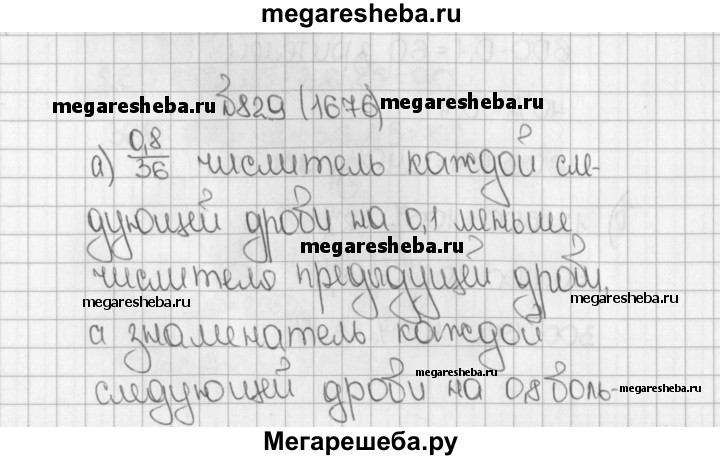 megaresheba.ru
№829 (1676)
megaresheba.ru megaresheba.ru
а) 0,8/36 числитель каждой сле-
дующей дроби на 0,1 меньше
megaresheba.ru
числителя предыдущей дроби,
megaresheba.ru megaresheba.ru
а знаменатель каждой
megaresheba.ru
следующей дроби на 0,8 боль-
megaresheba.ru
Мегарешеба.ру